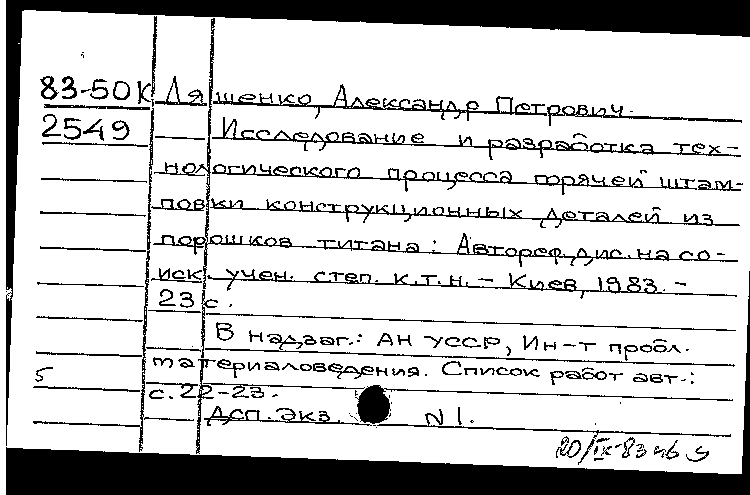 83-50К Ляшенко, Александр Петрович.
2549 Исследование и разработка тех-
нологического процесса горячей штам-
повки конструкционных деталей из
порошков титана: Автореф. дис. на со-
иск. учен. степ. к.т.н. – Киев, 1983. –
23 с.
В надзаг.: АН УССР, Ин-т пробл.
материаловедения. Список работ авт.:
5
с. 22-23.
ДСП. Экз. N 1.
20/IX-83